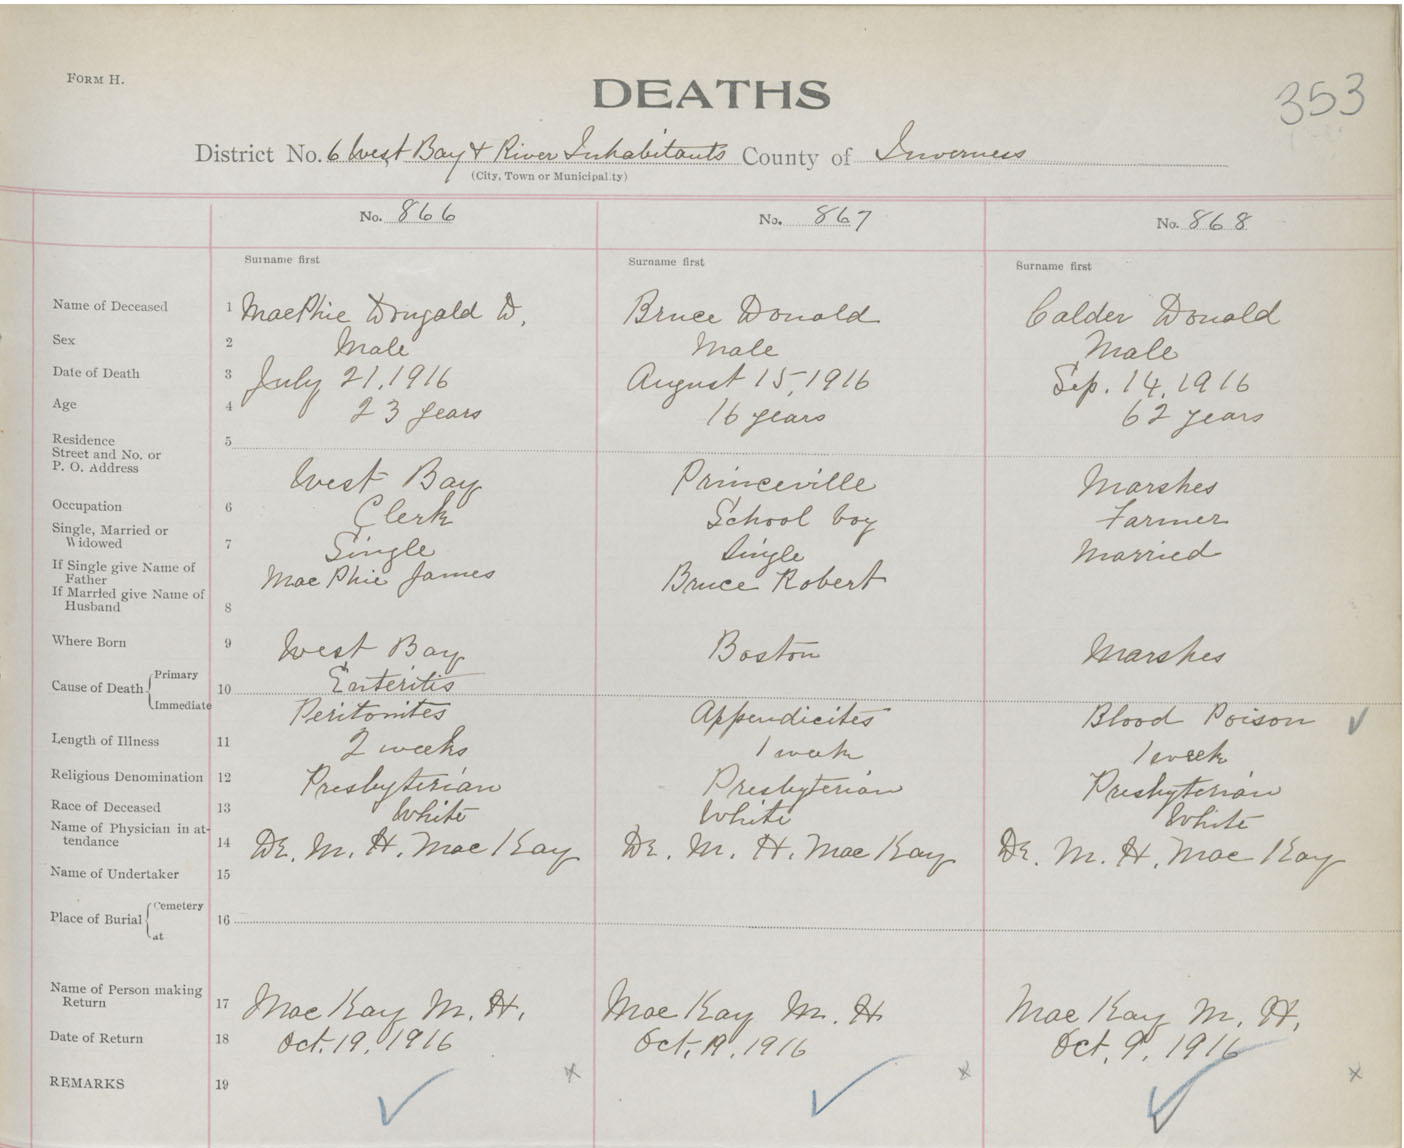 FORM H.
353
DEATHS
District No. 6 West Bay & River Inhabitants County of Inverness
(City, Town or Municipality)
No. 866 No. 867 No. 868
Surname first Surname first Surname first
Name of Deceased 1 MacPhie Dougald D. Bruce Donald Calder Donald
Sex 2 Male Male Male
Date of Death 3 July 21, 1916 August 15, 1916 Sep. 14, 1916
Age 4 23 years 16 years 62 years
Residence 5
Street and No. or
P. O. Address West Bay Princeville Marshes
Occupation 6 Clerk School boy Farmer
Single, Married or
Widowed 7 Single Single Married
If Single give Name of
Father MacPhie James Bruce Robert
If Married give Name of
Husband 8
Where Born 9 West Bay Boston Marshes
Cause of Death Primary 10 Enteritis
Immediate Peritonites Appendicites Blood Poison
Length of Illness 11 2 weeks 1 week 1 week
Religious Denomination 12 Presbyterian Presbyterian Presbyterian
Race of Deceased 13 White White White
Name of Physician in at-
tendance 14 Dr. M. H. MacKay Dr. M. H. MacKay Dr. M. H. MacKay
Name of Undertaker 15
Place of Burial Cemetery 16
at
Name of Person making
Return 17 MacKay M. H. MacKay M. H. MacKay M. H.
Date of Return 18 Oct. 19, 1916 Oct. 19, 1916 Oct. 9, 1916
REMARKS 19 x x x